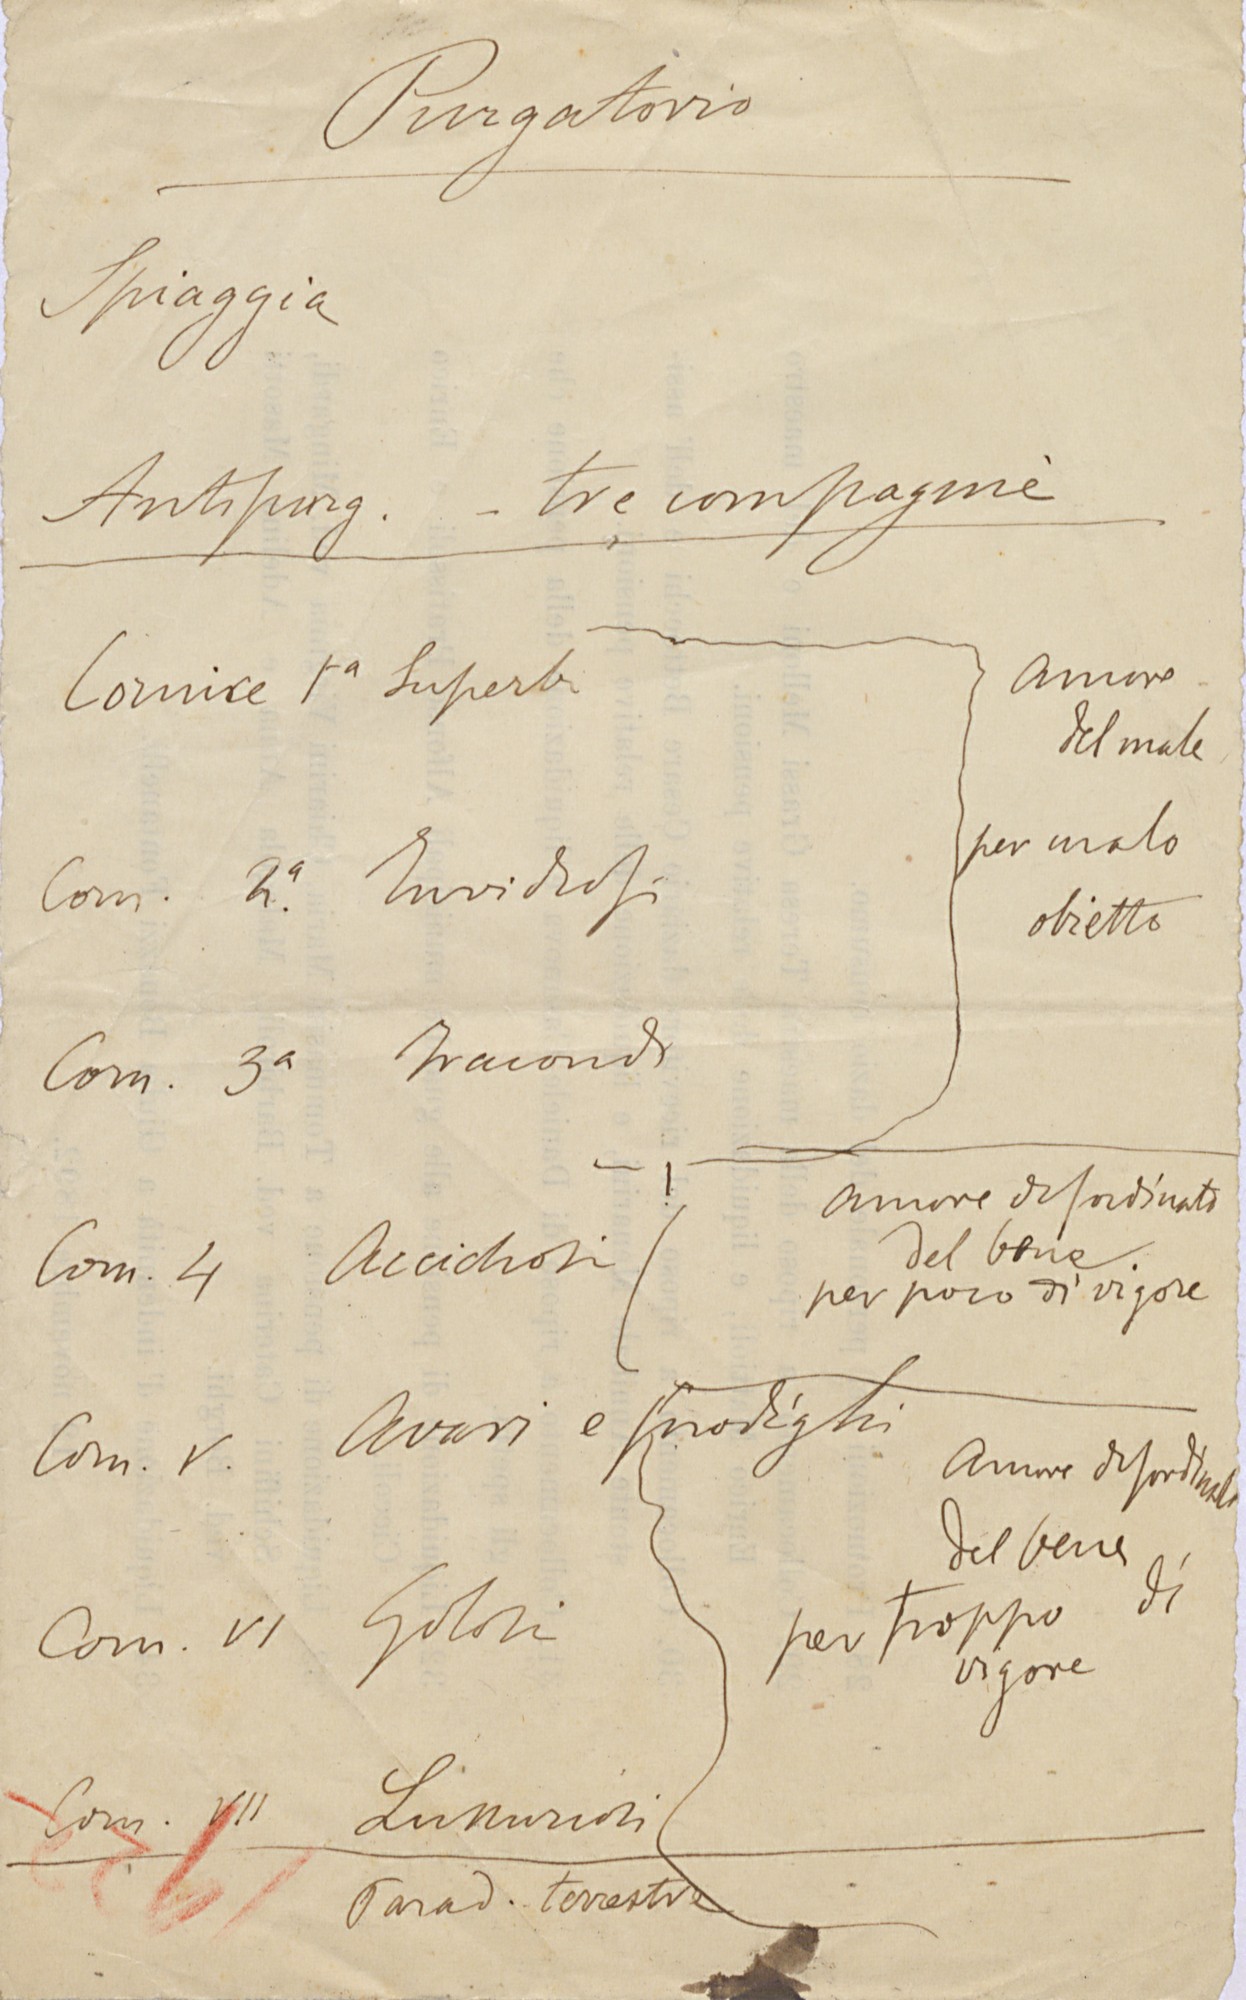 Purgatorio
Spiaggia
Antipurg. - tre compagnie
Cornice 1ª Superbi
amore
del male
per malo
obietto
Corn. 2ª Invidiosi
Corn. 3ª Iracondi
Corn. 4 Accidiosi
amore disordinato
del bene
per poco di vigore
Corn. V. Avari e prodighi
Amore disordinato
del bene
per troppo di
vigore
Corn. VI Golosi
Corn. VII Lussuriosi
Parad. terrestre